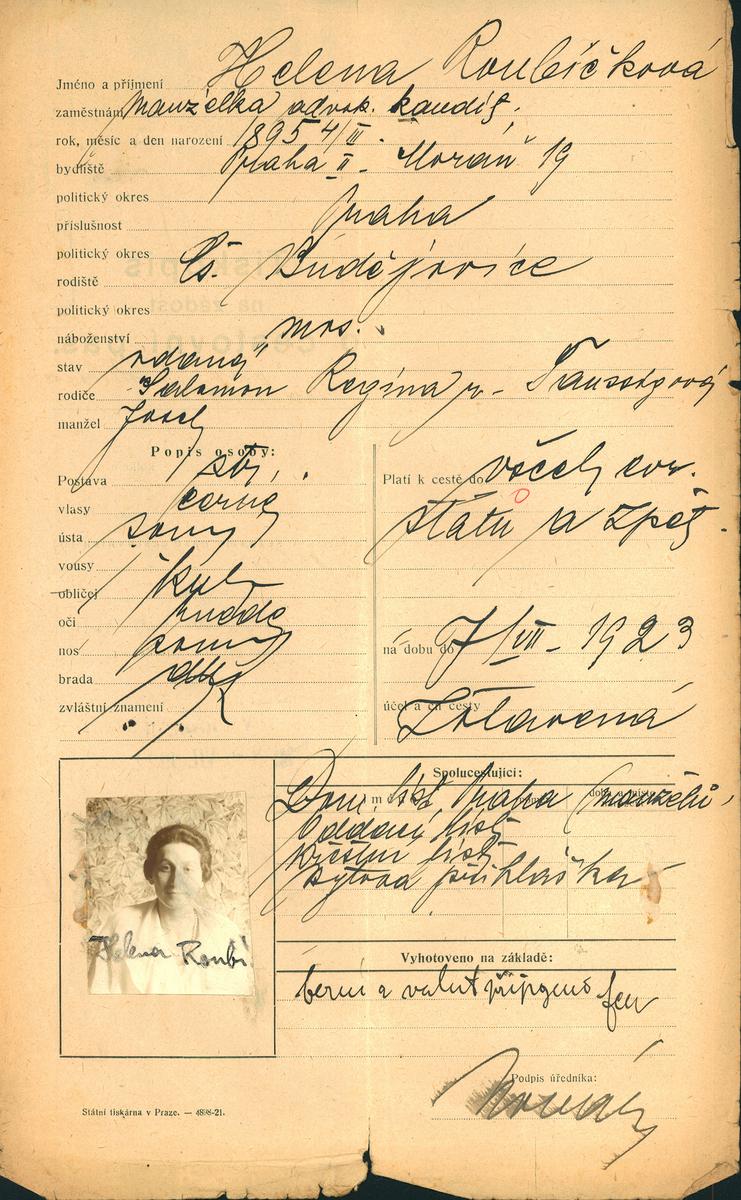 Jméno a příjmení Helena Roubíčková
zaměstnání manželka advok. kandid.
rok, měsíc a den narození 1895 4/III.
bydliště Praha II - Moráň 19
politický okres
příslušnost Praha
politický okres
rodiště Čs. Budějovice
politický okres
náboženství mos.
stav vdaná
rodiče Salamon Regina r. Taussigová
manžel Josef
Popis osoby:
Postava stř.
vlasy černé
ústa
vousy
obličej kul
oči hnědé
nos
brada
zvláštní znamení
Platí k cestě do všech evr.
států a zpět.
na dobu do 7/VII - 1923
účel a cíl cesty Zotavená
Spolucestující:
Dom. list Praha (manželů)
Oddací list
Křestní list
bytová přihláška
Helena Roubí
Vyhotoveno na základě:
berní a valut
Podpis úředníka:
Státní tiskárna v Praze. — 4898-21.